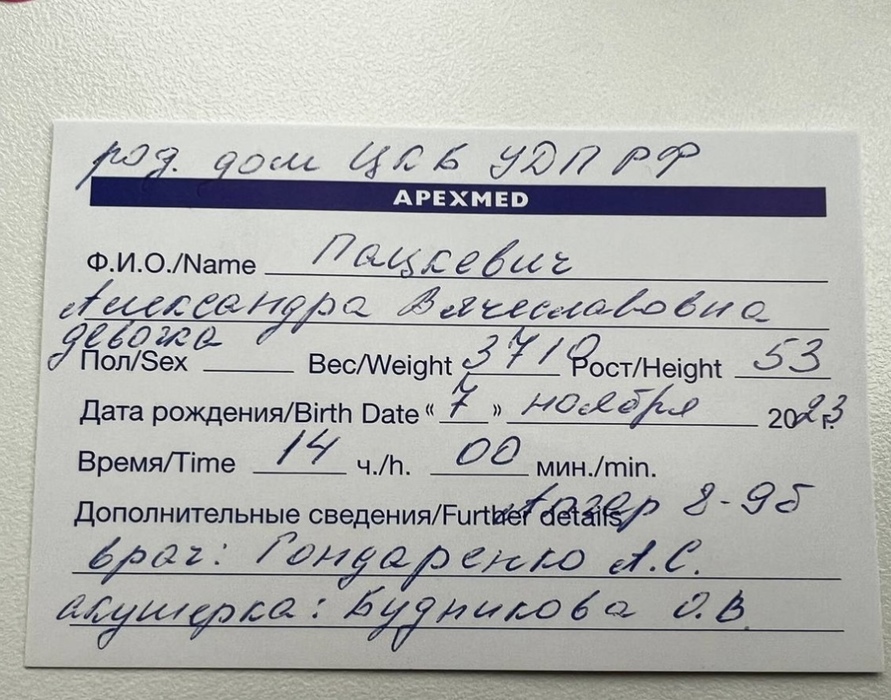 род. дом ЦКБ УДП РФ
APEXMED
Ф.И.О./Name Пацкевич
Александра Вячеславовна
девочка
Пол/Sex Вес/Weight 3710 Рост/Height 53
Дата рождения/Birth Date « 7 » ноября 2023 г.
Время/Time 14 ч./h. 00 мин./min.
Дополнительные сведения/Further details Апгар 8-9б
врач: Гондаренко А.С.
акушерка: Будникова О.В.